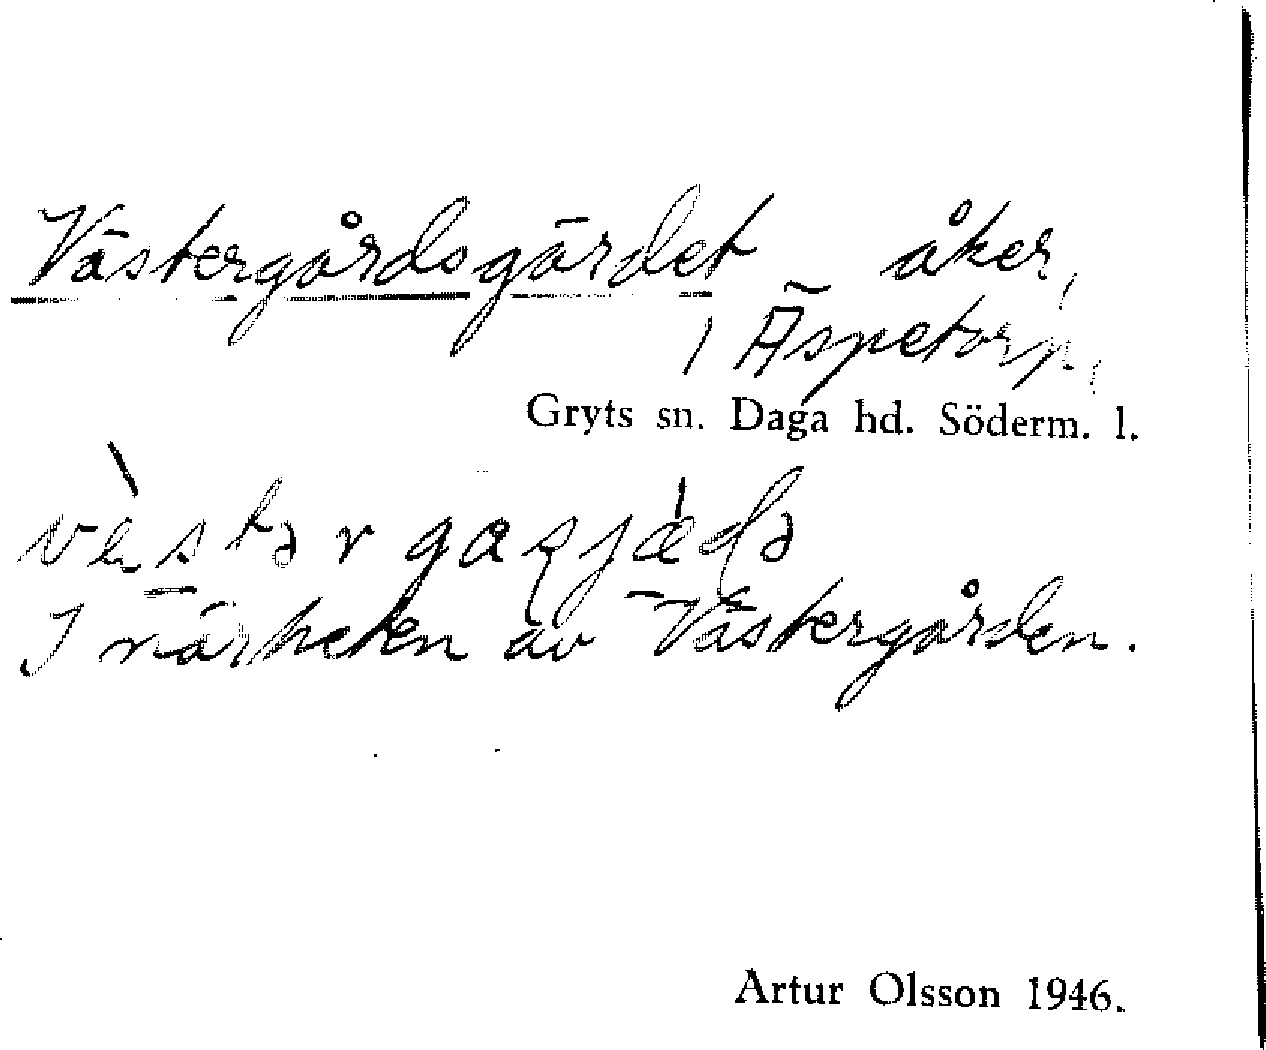 Västergårdsgärdet åker,
i Äspetorp,
Gryts sn. Daga hd. Söderm. l.
I närheten av Västergården.
Artur Olsson 1946.